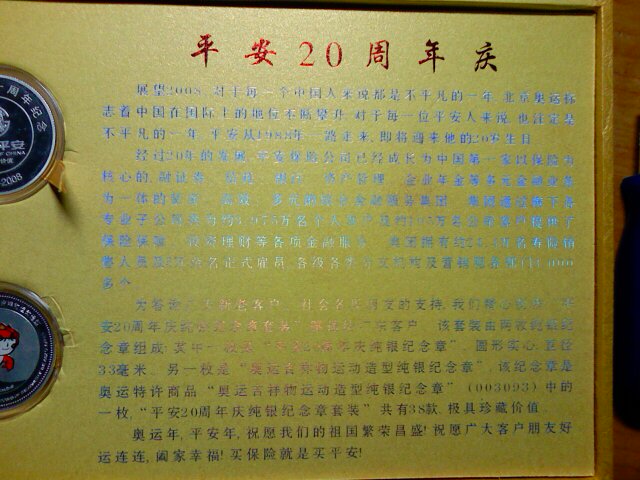 平安20周年庆
展望2008,对于每一个中国人来说都是不平凡的一年,北京奥运标
志着中国在国际上的地位不断攀升,对于每一位平安人来说,也注定是
不平凡的一年,平安从1988年一路走来,即将迎来他的20岁生日
经过20年的发展,平安保险公司已经成长为中国第一家以保险为
核心的,融证券、信托、银行、资产管理、企业年金等多元金融业务
为一体的
专业子公司 万名个人客户及约 万名公司客户提供了
保险保障、投资理财等各项金融服务。集团拥有约 万名寿险销
售人员及 名正式雇员,各级各类分支机构及营销服务部 ,000
多个
为答谢广大新老客户、社会各界朋友的支持,我们精心 平
安20周年庆纯银纪念章套装” 客户。该套装由两枚纯银纪
念章组成,其中一枚是 周年庆纯银纪念章”,圆形实心,直径
33毫米。另一枚是“奥运吉祥物运动造型纯银纪念章”,该纪念章是
奥运特许商品“奥运吉祥物运动造型纯银纪念章”(003093)中的
一枚,“平安20周年庆纯银纪念章套装”共有38款,极具珍藏价值。
奥运年,平安年,祝愿我们的祖国繁荣昌盛!祝愿广大客户朋友好
运连连,阖家幸福!买保险就是买平安!
周年纪念
平安
OF CHINA
价值
2008